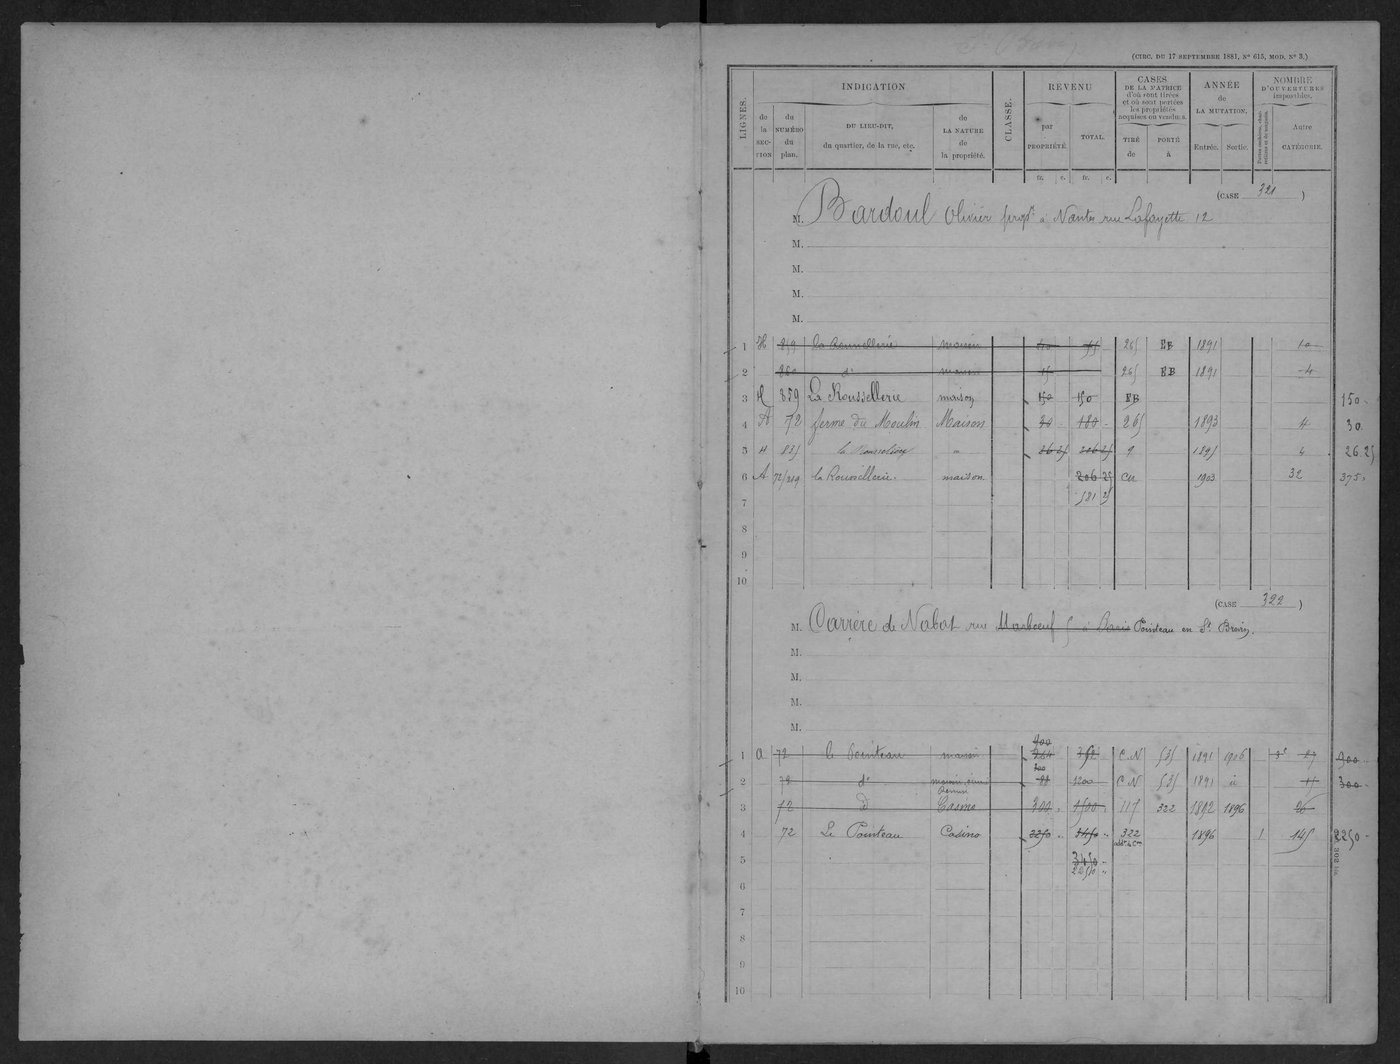 (CIRC. DU 17 SEPTEMBRE 1881, N° 615, MOD. N° 3.)
LIGNES. INDICATION CLASSE. REVENU CASES DE LA MATRICE d'où sont tirées et où sont portées les propriétés acquises ou vendues. ANNÉE de LA MUTATION. NOMBRE D'OUVERTURES imposables.
de la SECTION du NUMÉRO du plan. DU LIEU-DIT, du quartier, de la rue, etc. de LA NATURE de la propriété. par PROPRIÉTÉ. TOTAL. TIRÉ de PORTÉ à Entrée. Sortie. Autre CATÉGORIE.
fr. c. fr. c.
(CASE 321 )
M. Bardoul Olivier propre à Nantes rue Lafayette 12
M.
M.
M.
M.
1 H 859 maison 265 EB 1891 10
2 860 do maison 15 265 EB 1891 4
3 H 859 La Roussellerie maison 150 150 EB 150
4 A 72 ferme du Moulin Maison 30 180 265 1893 4 30
5 H 835 la " 26 25 206 25 9 1895 26 25
6 A 72/219 la Roussellerie. maison 206 25 CN 1903 32 375
7 581 25
8
9
10
(CASE 322 )
M. Carrère de Nabat rue Marboeuf à Paris Pointeau en St Brevin.
M.
M.
M.
M.
900
1 A 72 le Pointeau maison 264 352 CN 535 1891 1906 900
300
2 72 do 88 1200 CN 535 1891 300
3 72 do Casino 300 1500 117 322 1892 1896 20
4 72 Le Pointeau Casino 2250 3450 322 1896 1 145 2250
5 3450
2250
6
7
8
9
10